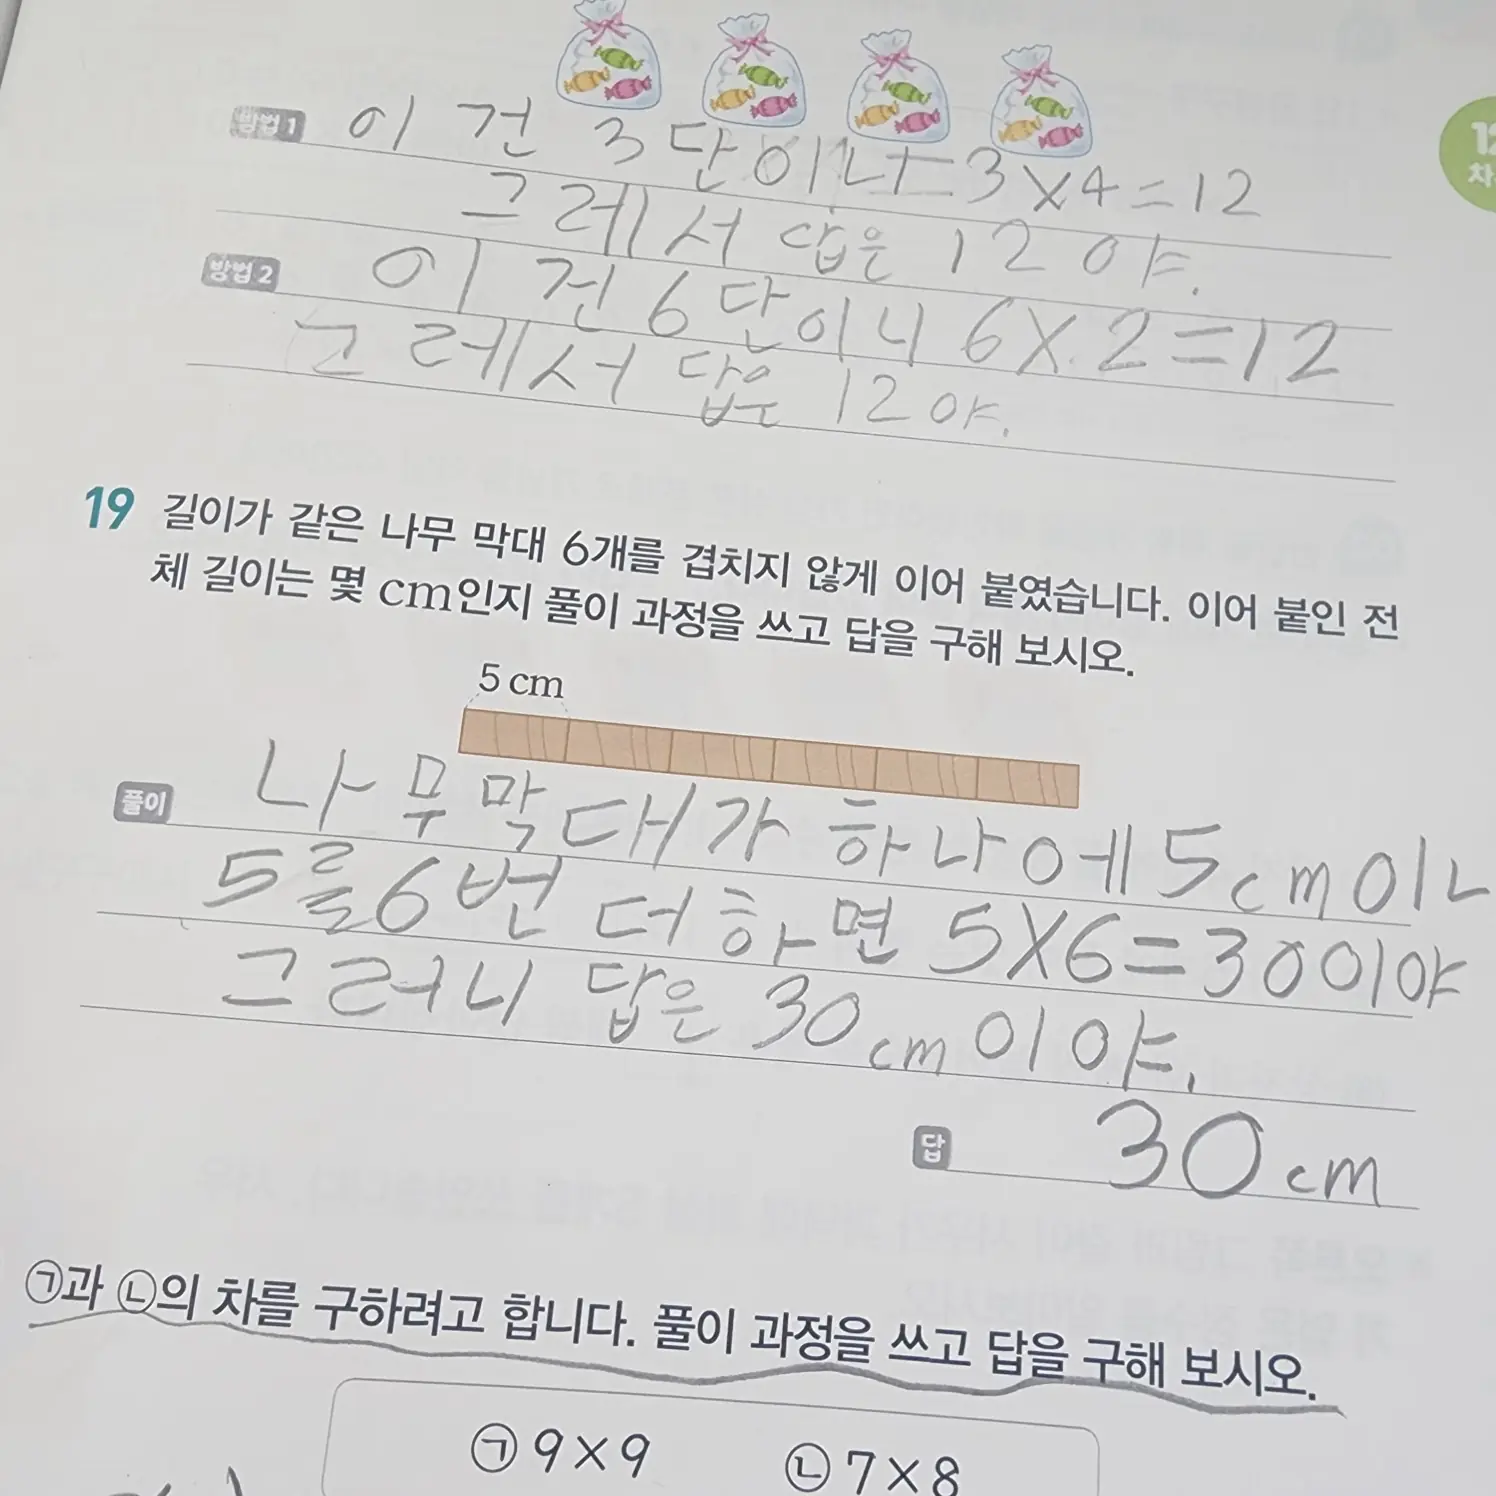 방법1 이건 3단이니 3×4=12
그레서 답은 12야.
방법2 이건 6단이니 6×2=12
그레서 답은 12야.
12
차
19 길이가 같은 나무 막대 6개를 겹치지 않게 이어 붙였습니다. 이어 붙인 전
체 길이는 몇 cm인지 풀이 과정을 쓰고 답을 구해 보시오.
5 cm
풀이 나무막대가 하나에 5cm이니
5를 6번 더하면 5×6=30이야
그러니 답은 30cm이야.
답 30cm
㉠과 ㉡의 차를 구하려고 합니다. 풀이 과정을 쓰고 답을 구해 보시오.
㉠ 9×9 ㉡ 7×8